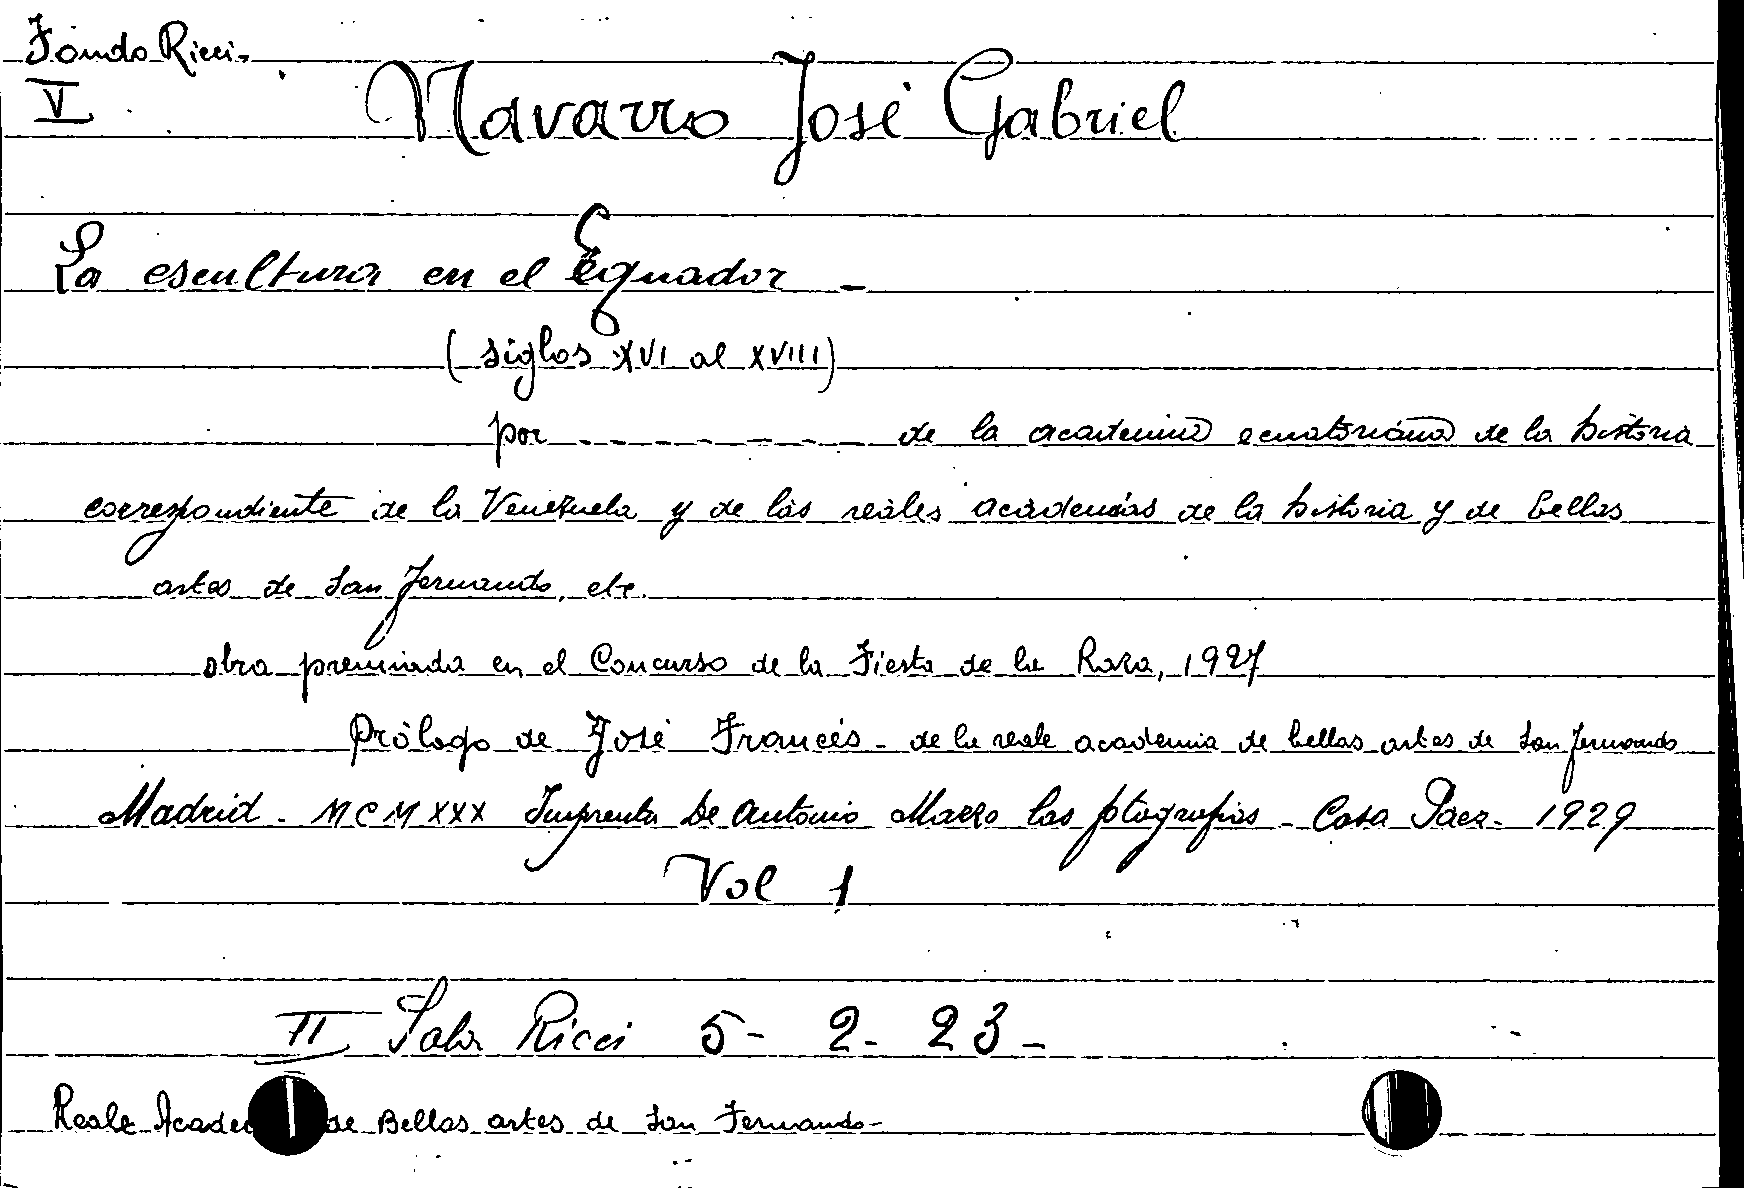 Fondo Ricci-
V
Navarro José Gabriel
La escultura en el Equador -
(siglos XVI al XVIII)
por - - - - - - - - - de la academia ecuatoriana de la historia
correspondiente de la Venezuela y de las reales academias de la historia y de bellas
artes de San Fernando, etc.
obra premiada en el Concurso de la Fiesta de la Raza, 1927
Prólogo de José Francés - de la reale academia de bellas artes de San Fernando
Madrid - MCMXXX Imprenta De Antonio Marzo las fotografias - Casa Paez - 1929
Vol 1
II Sala Ricci 5- 2- 23-
Reale Acade de Bellas artes de San Fernando-